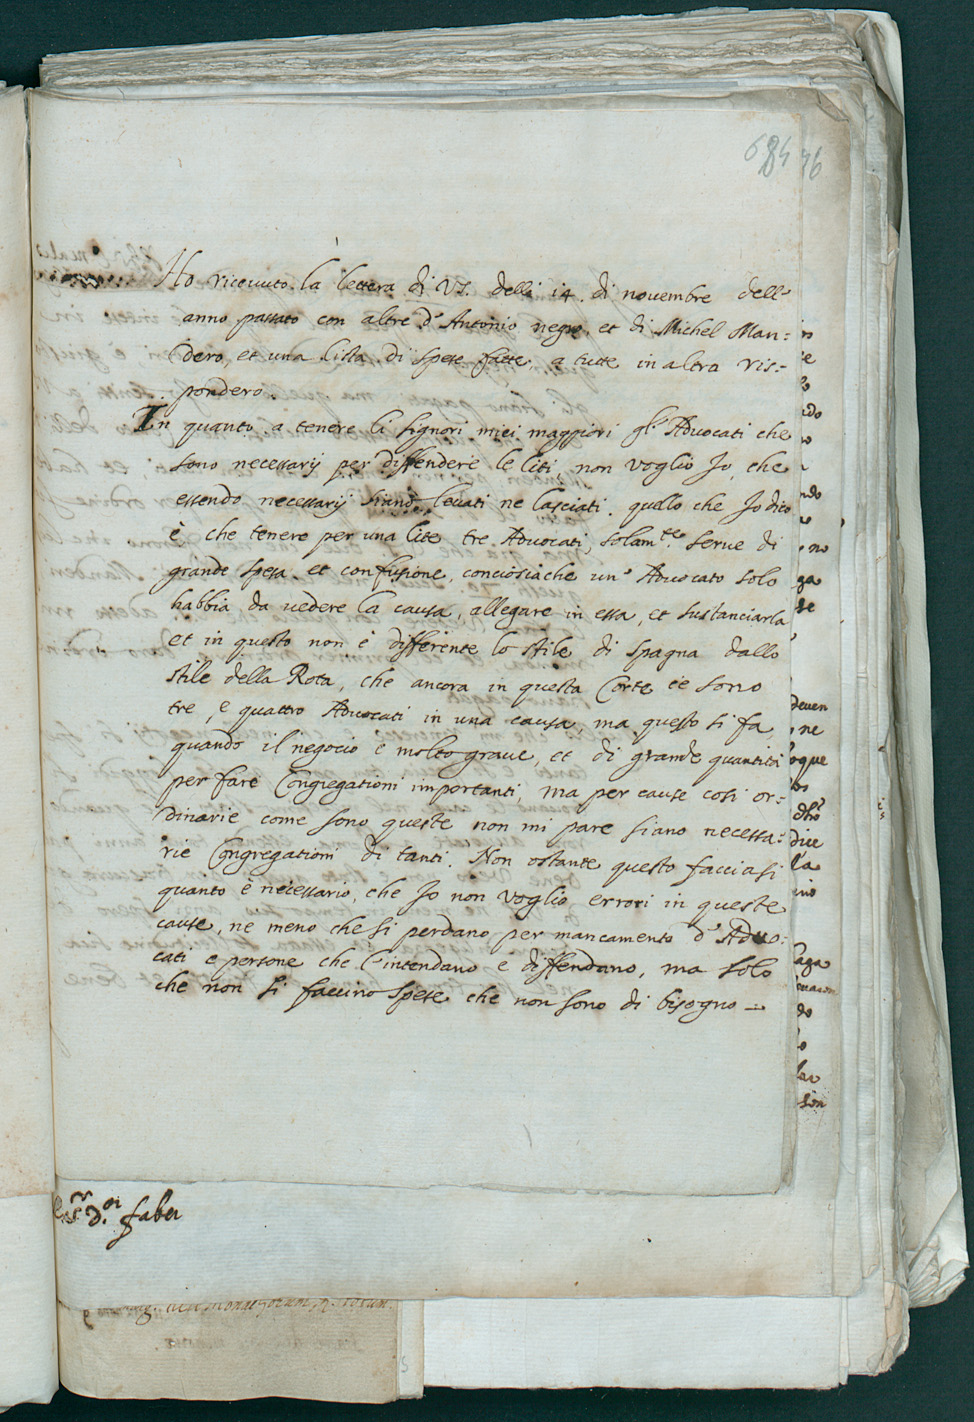 684 76
Ho riceuuto la lettera di VS. delli 14. di nouembre dell'
anno passato con altre d'Antonio negro, et di Michel Man=
dero, et una lista di spese fatte, a tutte in altra ris=
ponderò.
In quanto a tenere li signori miei maggiori gl'Aduocati che
sono necessarij per diffendere le liti, non voglio Io, che
essendo necessarij siano leuati ne lasciati. quello che Io dico
è che tenere per una lite tre Aduocati, solam.te serue di
grande spesa et confusione, conciosiache un' Aduocato solo
habbia da uedere la causa, allegare in essa, et sustanciarla
et in questo non è differente lo stile di spagna dallo
stile della Rota, che ancora in questa Corte ce sono
tre, e quattro Aduocati in una causa, ma questo si fa
quando il negocio è molto graue, et di grande quantità
per fare Congregationi importanti, ma per cause cosi or=
dinarie come sono queste non mi pare siano necessa=
rie Congregationi di tanti. Non ostante questo facciasi
quanto è necessario, che Io non voglio errori in queste
cause, ne meno che si perdano per mancamento d'Aduo=
cati e persone che l'intendano e diffendano, ma solo
che non si faccino spese che non sono di bisogno
D.or faber